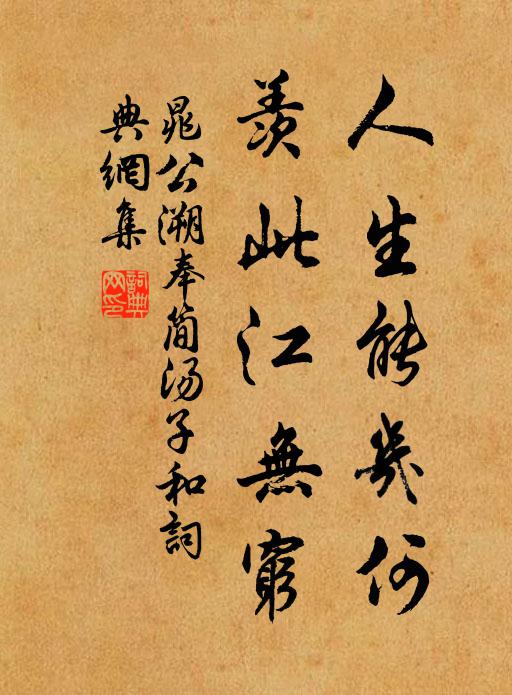 人生能幾何
羨此江無窮
晁公溯奉簡湯子和詞
典網集
詞典网印